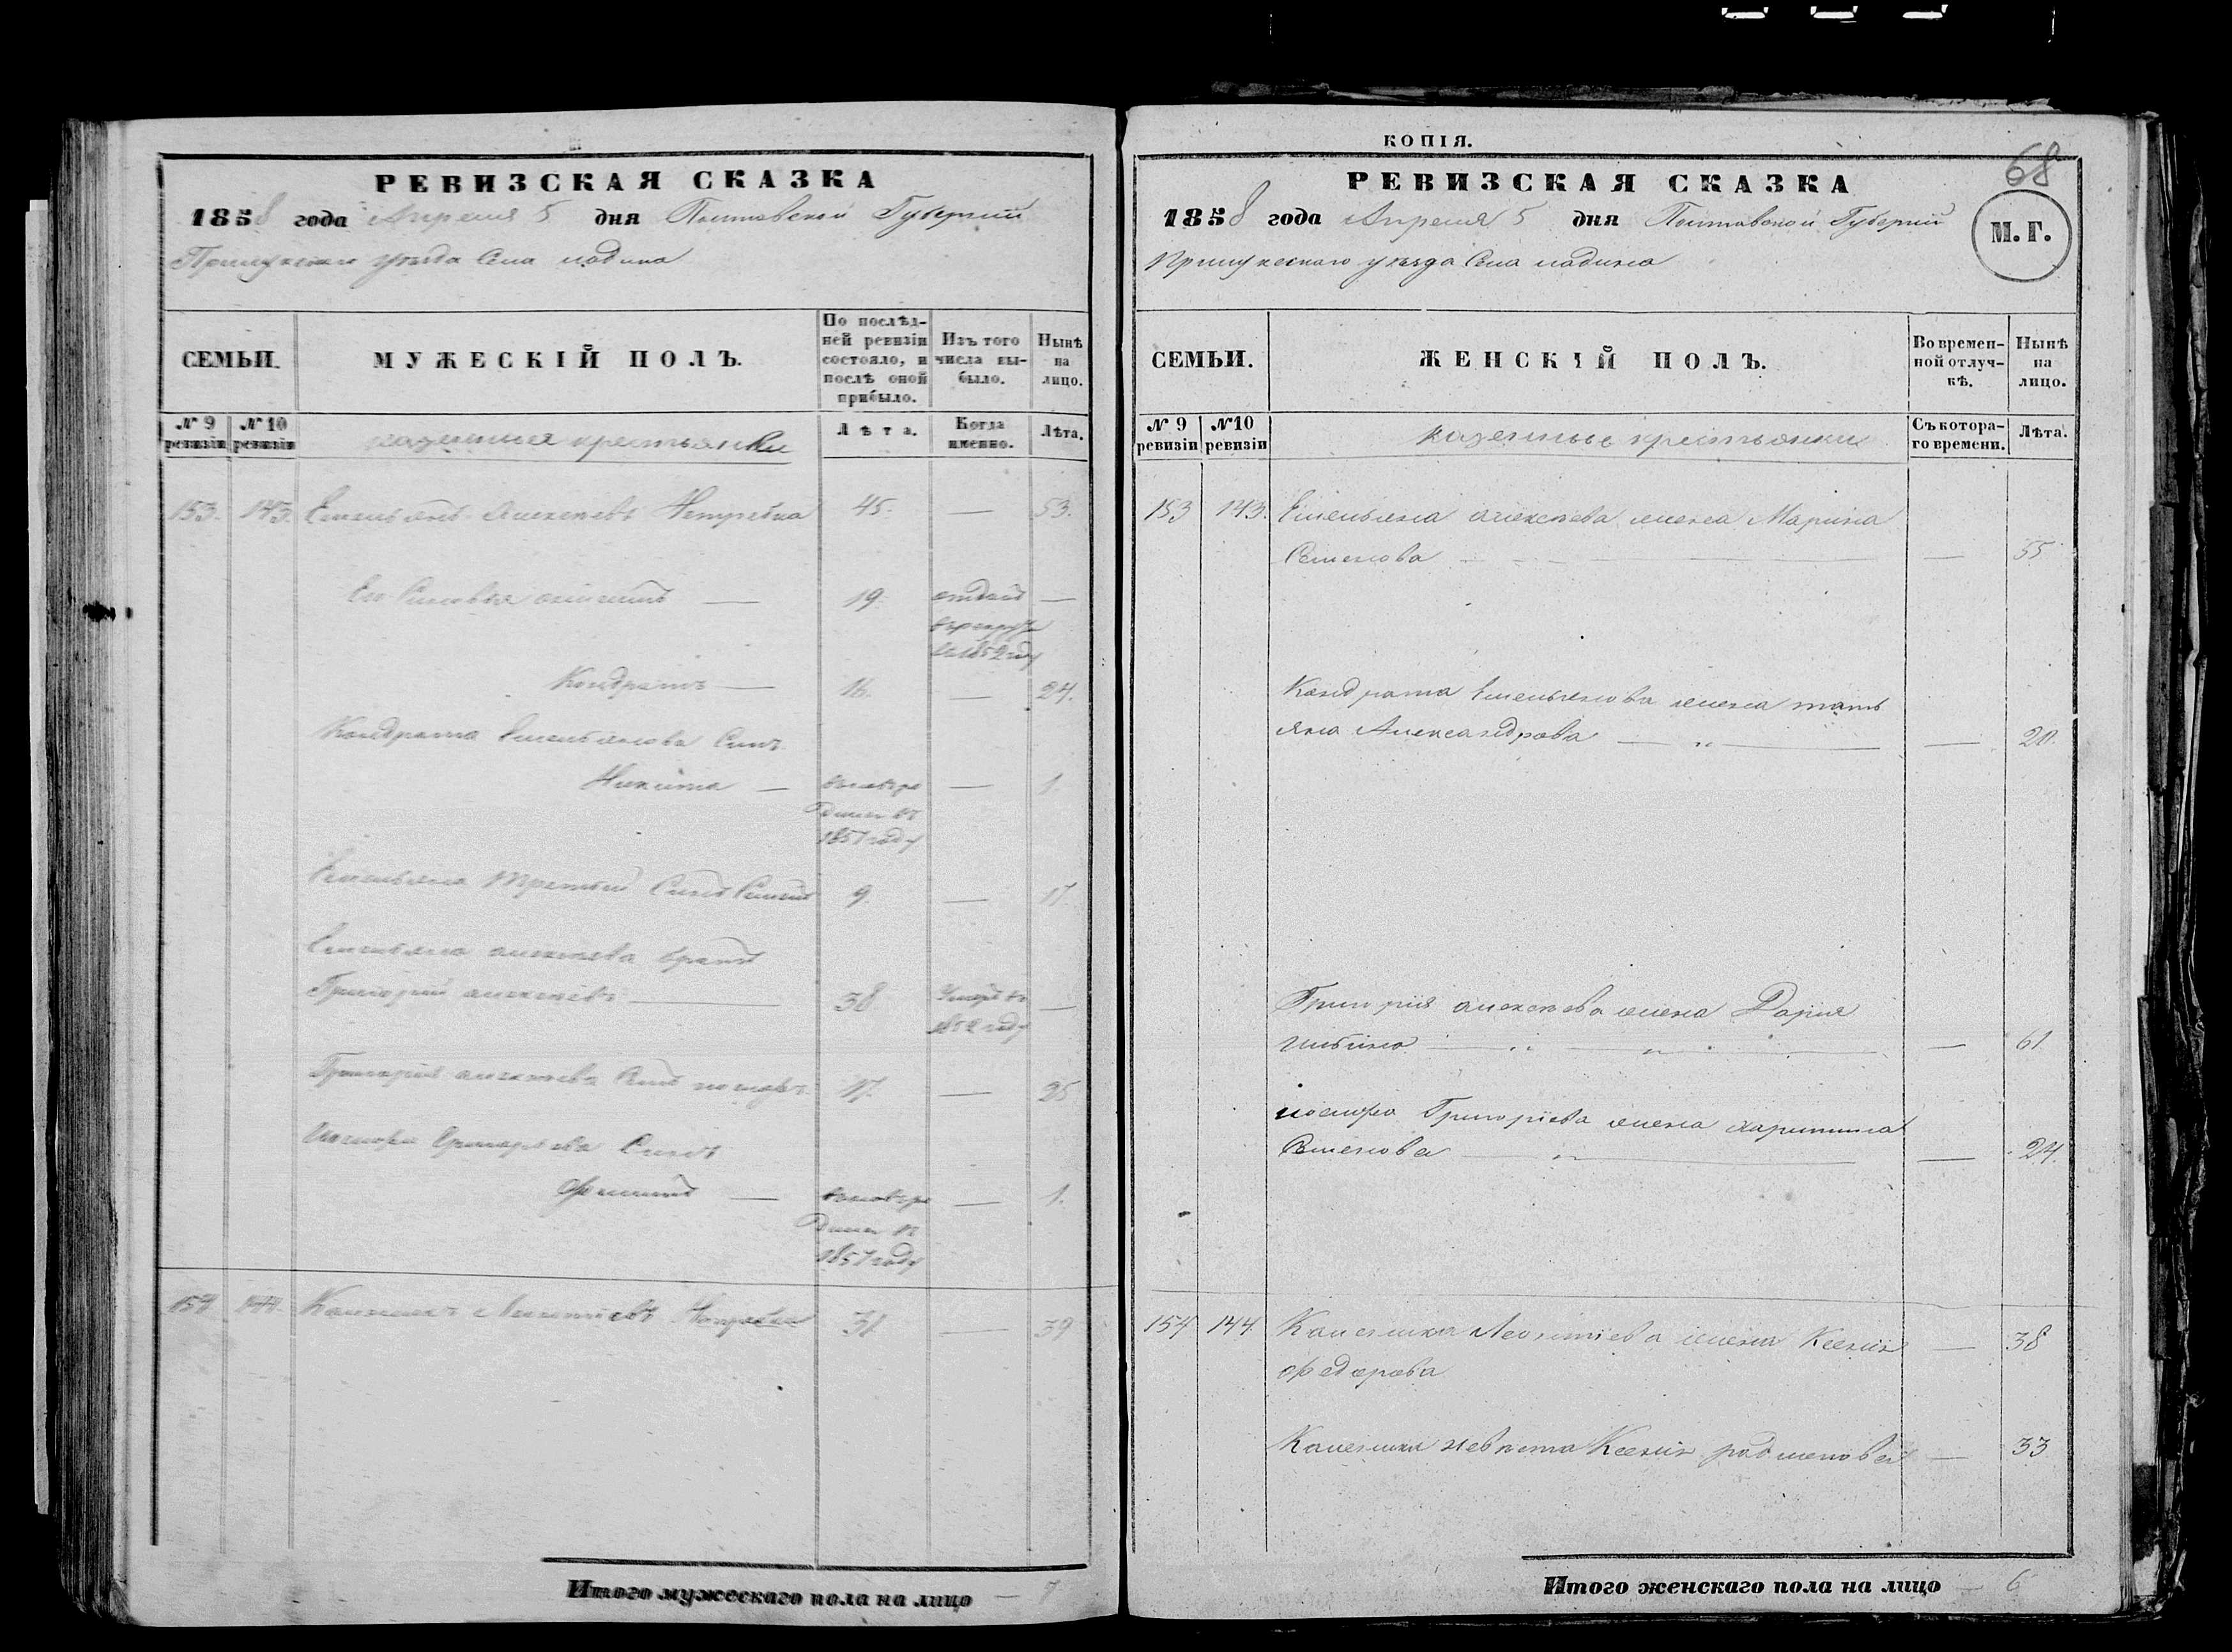 РЕВИЗСКАЯ СКАЗКА
1858 года Апреля 5 дня Полтавской Губернии
Прилукскаго уезда Села Ладина
СЕМЬИ.
МУЖЕСКІЙ ПОЛЪ.
По послѣд-
ней ревизіи
состояло, и
послѣ оной
прибыло.
Изъ того
числа вы-
было.
Нынѣ
на
лицо.
№ 9
ревизіи
№ 10
ревизіи
казенные крестьянки
Лѣта.
Когда
именно.
Лѣта.
153. 143. Емельянъ Алексѣевъ Непурейка 45. — 53.
Его Сыновья — 19. отданъ —
въ рекруты
въ 1852 году
Кондратъ — 16. — 24.
Кондрата Емельянова Сынъ
Никита — вновь ро 1.
дился въ
1857 году
Емельяна третий Сынъ 9. — 17.
Емельяна Алексѣева братъ
Григорий Алексѣевъ — 38. Умеръ въ —
1852 году
Григория Алексѣева Сынъ 17. — 25
Григорьева Сынъ
— вновь ро — 1.
дился въ
1857 году
154. 144. Леонтіевъ 31. — 39
Итого мужескаго пола на лицо — 7
КОПІЯ.
68
РЕВИЗСКАЯ СКАЗКА
1858 года Апреля 5 дня Полтавской Губернии
М. Г.
Прилукскаго уезда Села Ладина
СЕМЬИ.
ЖЕНСКІЙ ПОЛЪ.
Во времен-
ной отлуч-
кѣ.
Нынѣ
на
лицо.
№ 9
ревизіи
№ 10
ревизіи
казенные крестьянки
Съ котора-
го времени.
Лѣта.
153 143. Емельяна Алексѣева жена Марина
Семенова — — 55
Кондрата Емельянова жена Тать
яна Александрова — — 20.
Григория Алексѣева жена Дария
— — 61.
Иосифа Григоріева жена Харитина
Семенова — — 24.
154 144 Леонтіева жена Ксения — 38
Федорова
Ксения — 33
Итого женскаго пола на лицо — 6